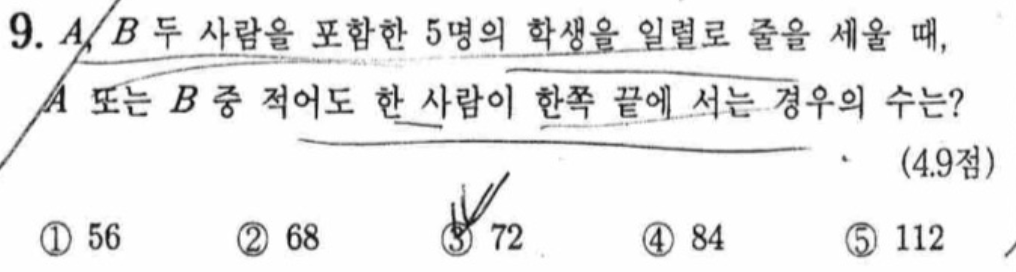 9. A, B 두 사람을 포함한 5명의 학생을 일렬로 줄을 세울 때,
A 또는 B 중 적어도 한 사람이 한쪽 끝에 서는 경우의 수는?
(4.9점)
① 56 ② 68 ③ 72 ④ 84 ⑤ 112